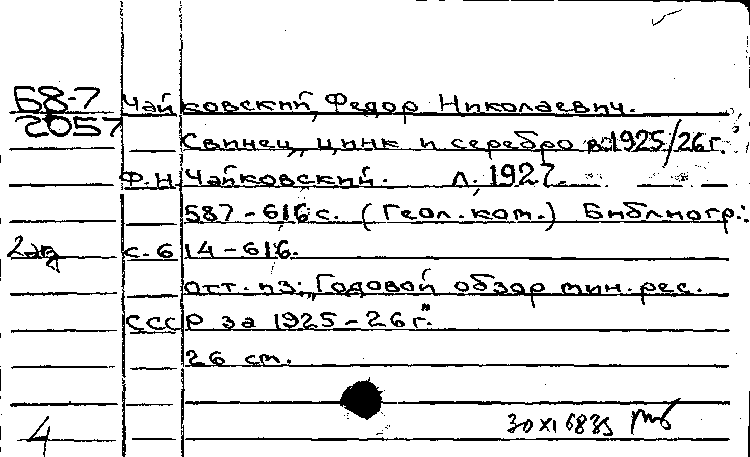 Б8-7 Чайковский, Федор Николаевич.
2057 Свинец, цинк и серебро в 1925/26 г.
Ф.Н. Чайковский. Л., 1927.
587-616 с. (Геол. ком.) Библиогр.:
2 экз с. 614-616.
отт. из: „Годовой обзор мин. рес.
СССР за 1925-26 г."
26 см.
4 30 XI 68